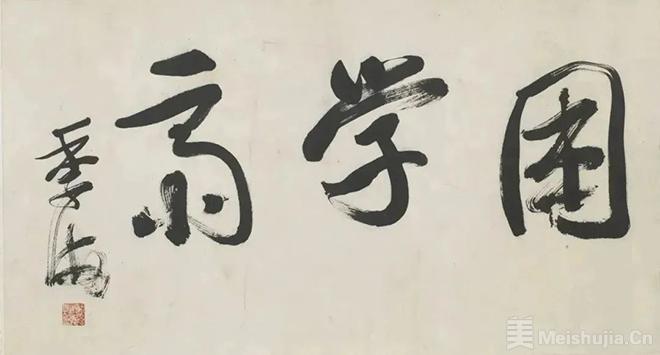 困学斋
季
美 Meishujia.Cn